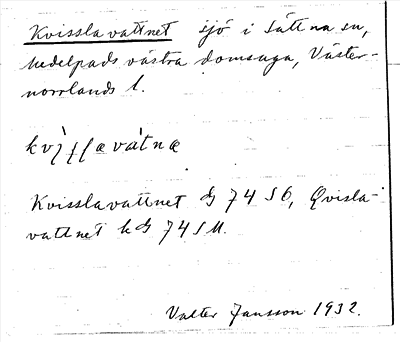 Kvisslavattnet sjö i Sättna sn,
Medelpads västra domsaga, Väster-
norrlands l.
Kvisslavattnet G 74 SO, Qvisla-
vattnet kG 74 SM.
Valter Jansson 1932.